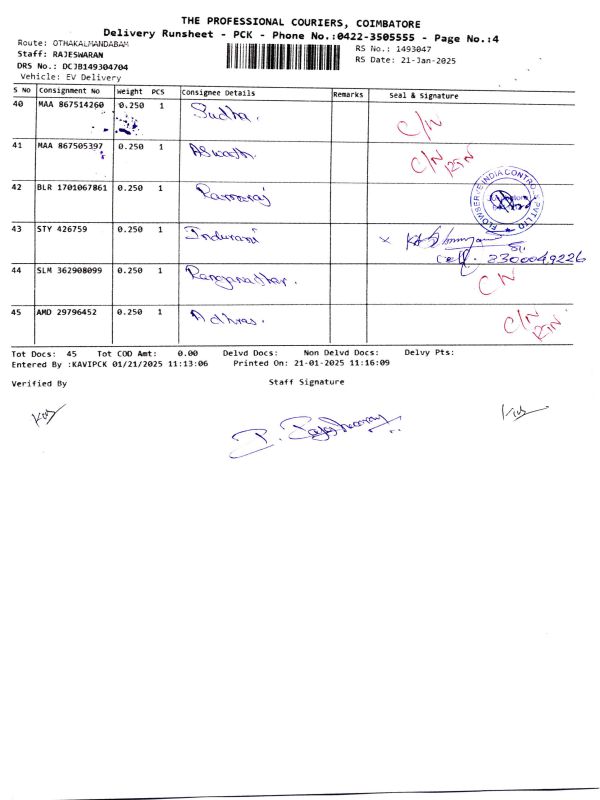 THE PROFESSIONAL COURIERS, COIMBATORE
Delivery Runsheet - PCK - Phone No.:0422-3505555 - Page No.:4
Route: OTHAKALMANDABAM
Staff: RAJESWARAN
DRS No.: DCJB149304704
Vehicle: EV Delivery
RS No.: 1493047
RS Date: 21-Jan-2025
S No Consignment No Weight PCS Consignee Details Remarks Seal & Signature
40 MAA 867514260 0.250 1 Sudha. C/N
41 MAA 867505397 0.250 1 Aswath. C/N
42 BLR 1701067861 0.250 1 Ramaraj
FLOWSERVE INDIA CONTROLS PVT LTD
43 STY 426759 0.250 1 Indurani x
Cell. 2300049226
44 SLM 362908099 0.250 1 Ranganadhar. CN
45 AMD 29796452 0.250 1 C/N
Tot Docs: 45 Tot COD Amt: 0.00 Delvd Docs: Non Delvd Docs: Delvy Pts:
Entered By :KAVIPCK 01/21/2025 11:13:06 Printed On: 21-01-2025 11:16:09
Verified By Staff Signature